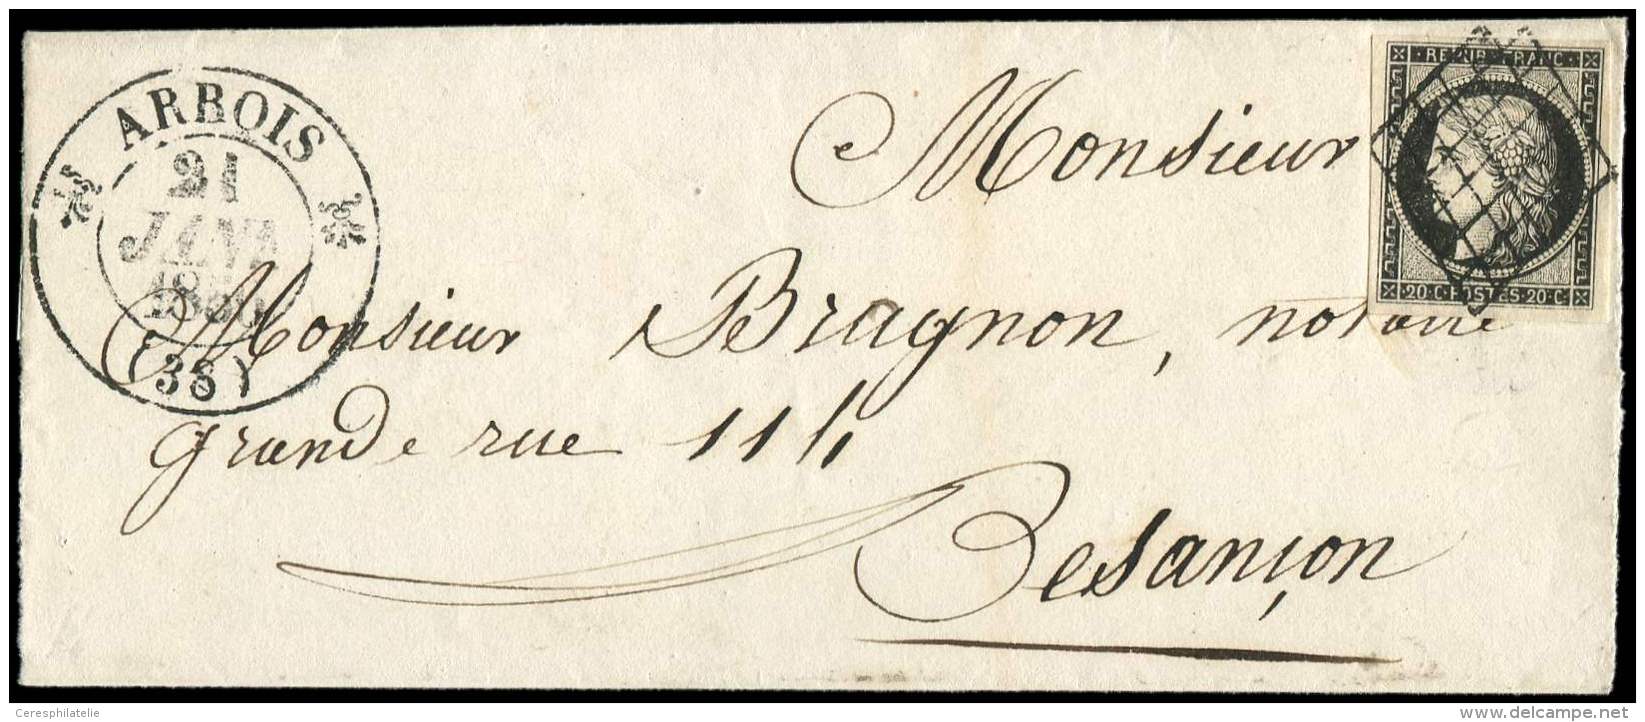 ARBOIS
21
JANV
1850
(38)
REPUB·FRANC·
·20·C·POSTES·20·C·
Monsieur
Monsieur Bragnon, notaire
grande rue 114
Besançon
Ceresphilatelie
delcampe.net